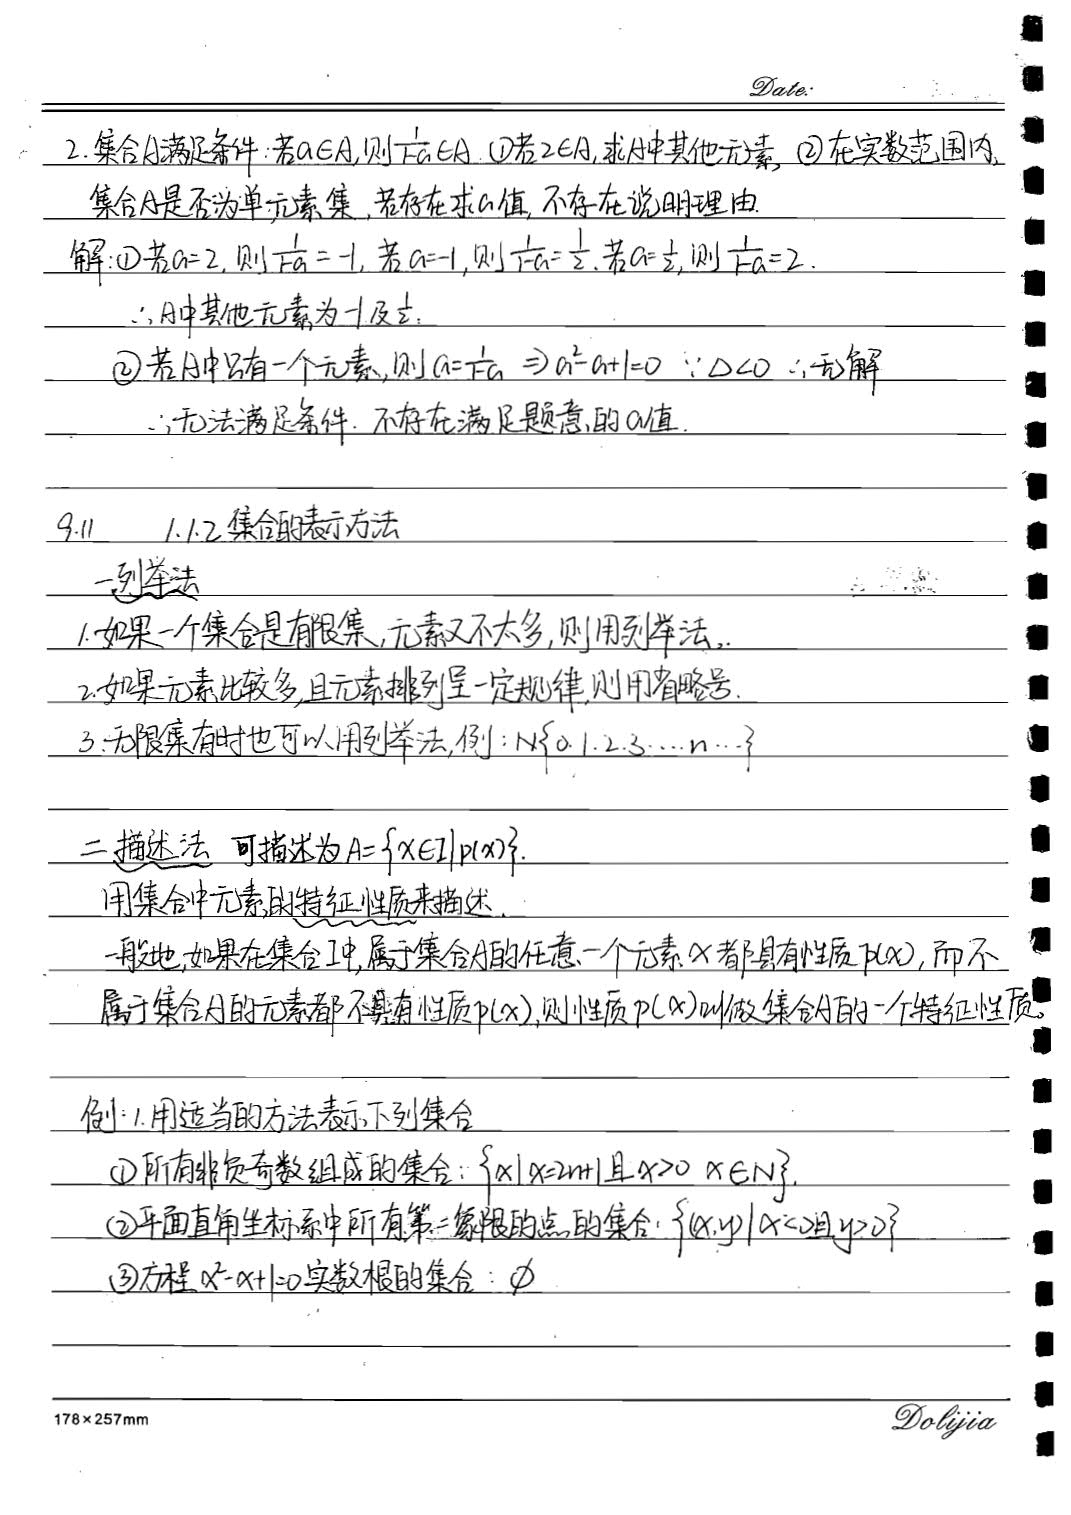 Date:
2.集合A满足条件:若a∈A,则1/(1-a)∈A.①若2∈A,求A中其他元素,②在实数范围内,
集合A是否为单元素集,若存在求a值,不存在说明理由.
解:①若a=2,则1/(1-a)=-1,若a=-1,则1/(1-a)=1/2.若a=1/2,则1/(1-a)=2.
∴A中其他元素为-1及1/2.
②若A中只有一个元素,则a=1/(1-a)⇒a²-a+1=0 ∵△<0 ∴无解
∴无法满足条件.不存在满足题意的a值.
9.11 1.1.2集合的表示方法
一列举法
1.如果一个集合是有限集,元素又不太多,则用列举法.
2.如果元素比较多,且元素排列呈一定规律,则用省略号.
3.无限集有时也可以用列举法,例:N{0.1.2.3.…n…}
二描述法 可描述为A={x∈I|p(x)}.
用集合中元素的特征性质来描述.
一般地,如果在集合I中,属于集合A的任意一个元素x都具有性质p(x),而不
属于集合A的元素都不具有性质p(x),则性质p(x)叫做集合A的一个特征性质.
例:1.用适当的方法表示下列集合
①所有非负奇数组成的集合:{x|x=2n+1且x>0 x∈N}.
②平面直角坐标系中所有第二象限的点的集合:{(x,y)|x<0且y>0}
③方程x²-x+1=0实数根的集合:∅
178×257mm
Dolijia